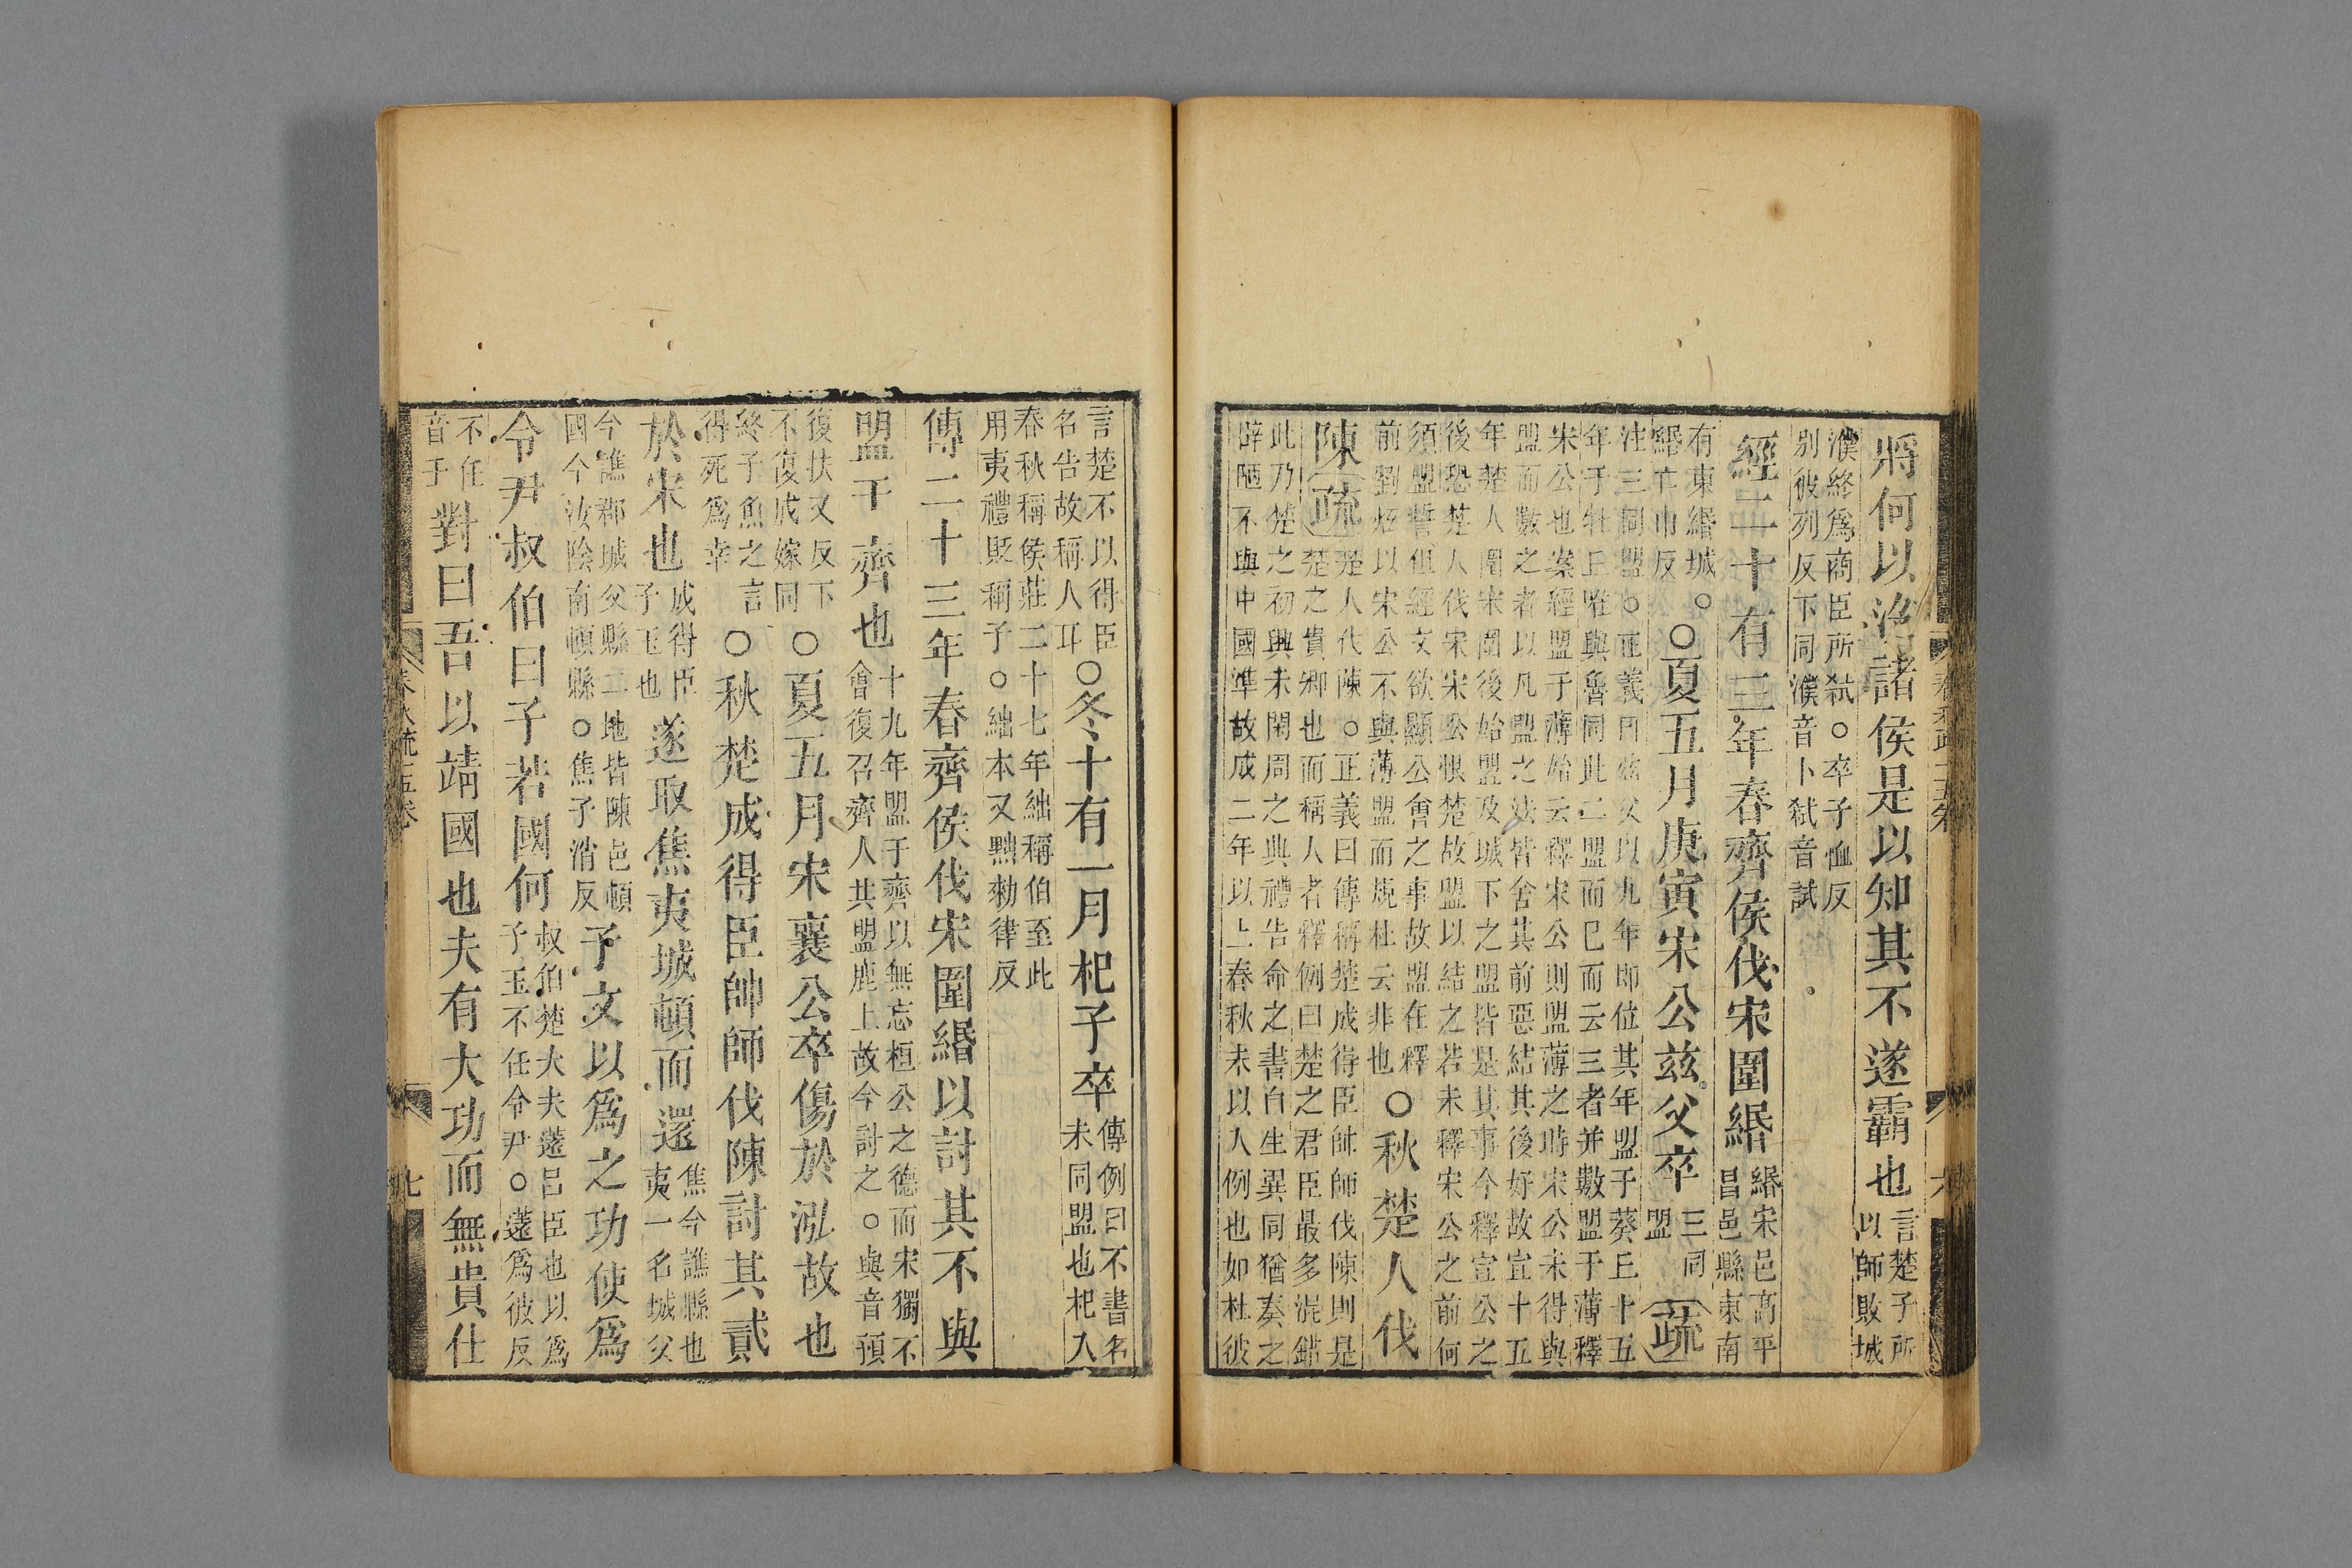 將何以沒諸侯是以知其不遂霸也言楚子所
以師敗城
濮終為商臣所弑○卒子恤反
别彼列反下同濮音卜弑音試
經二十有三年春齊侯伐宋圍緡緡宋邑高平
昌邑縣東南
有東緡城○
緡亡巾反○夏五月庚寅宋公兹父卒三同
盟疏
注三同盟○正義曰兹父以九年即位其年盟于葵丘十五
年于牡丘唯與魯同此二盟而已而云三者并數盟于薄釋
宋公也案經盟于薄始云釋宋公則盟薄之時宋公未得與
盟而數之者以凡盟之法皆舍其前惡結其後好故宣十五
年楚人圍宋圍後始盟及城下之盟皆是其事今釋宣公之
後恐楚人伐宋宋公恨楚故盟以結之若未釋宋公之前何
須盟誓但經文欲顯公會之事故盟在釋
前劉炫以宋公不與薄盟而規杜云非也○秋楚人伐
陳疏楚人伐陳○正義曰傳稱楚成得臣帥師伐陳則是
楚之貴卿也而稱人者釋例曰楚之君臣最多混錯
此乃楚之初興未閑周之典禮告命之書自生異同猶秦之
辟陋不與中國準故成二年以上春秋未以人例也如杜彼
言楚不以得臣
名告故稱人耳○冬十有一月杞子卒傳例曰不書名
未同盟也杞入
春秋稱侯莊二十七年絀稱伯至此
用夷禮貶稱子○絀本又黜勑律反
傳二十三年春齊侯伐宋圍緡以討其不與
盟于齊也十九年盟于齊以無忘桓公之德而宋獨不
會復召齊人共盟鹿上故今討之○與音預
復扶又反下
不復成嫁同○夏五月宋襄公卒傷於泓故也
終子魚之言
得死為幸○秋楚成得臣帥師伐陳討其貳
於宋也成得臣
子玉也遂取焦夷城頓而還焦今譙縣也
夷一名城父
今譙郡城父縣二地皆陳邑頓
國今汝陰南頓縣○焦子消反子文以為之功使為
令尹叔伯曰子若國何叔伯楚大夫薳呂臣也以為
子玉不任令尹○薳為彼反
不任
音壬對曰吾以靖國也夫有大功而無貴仕
七